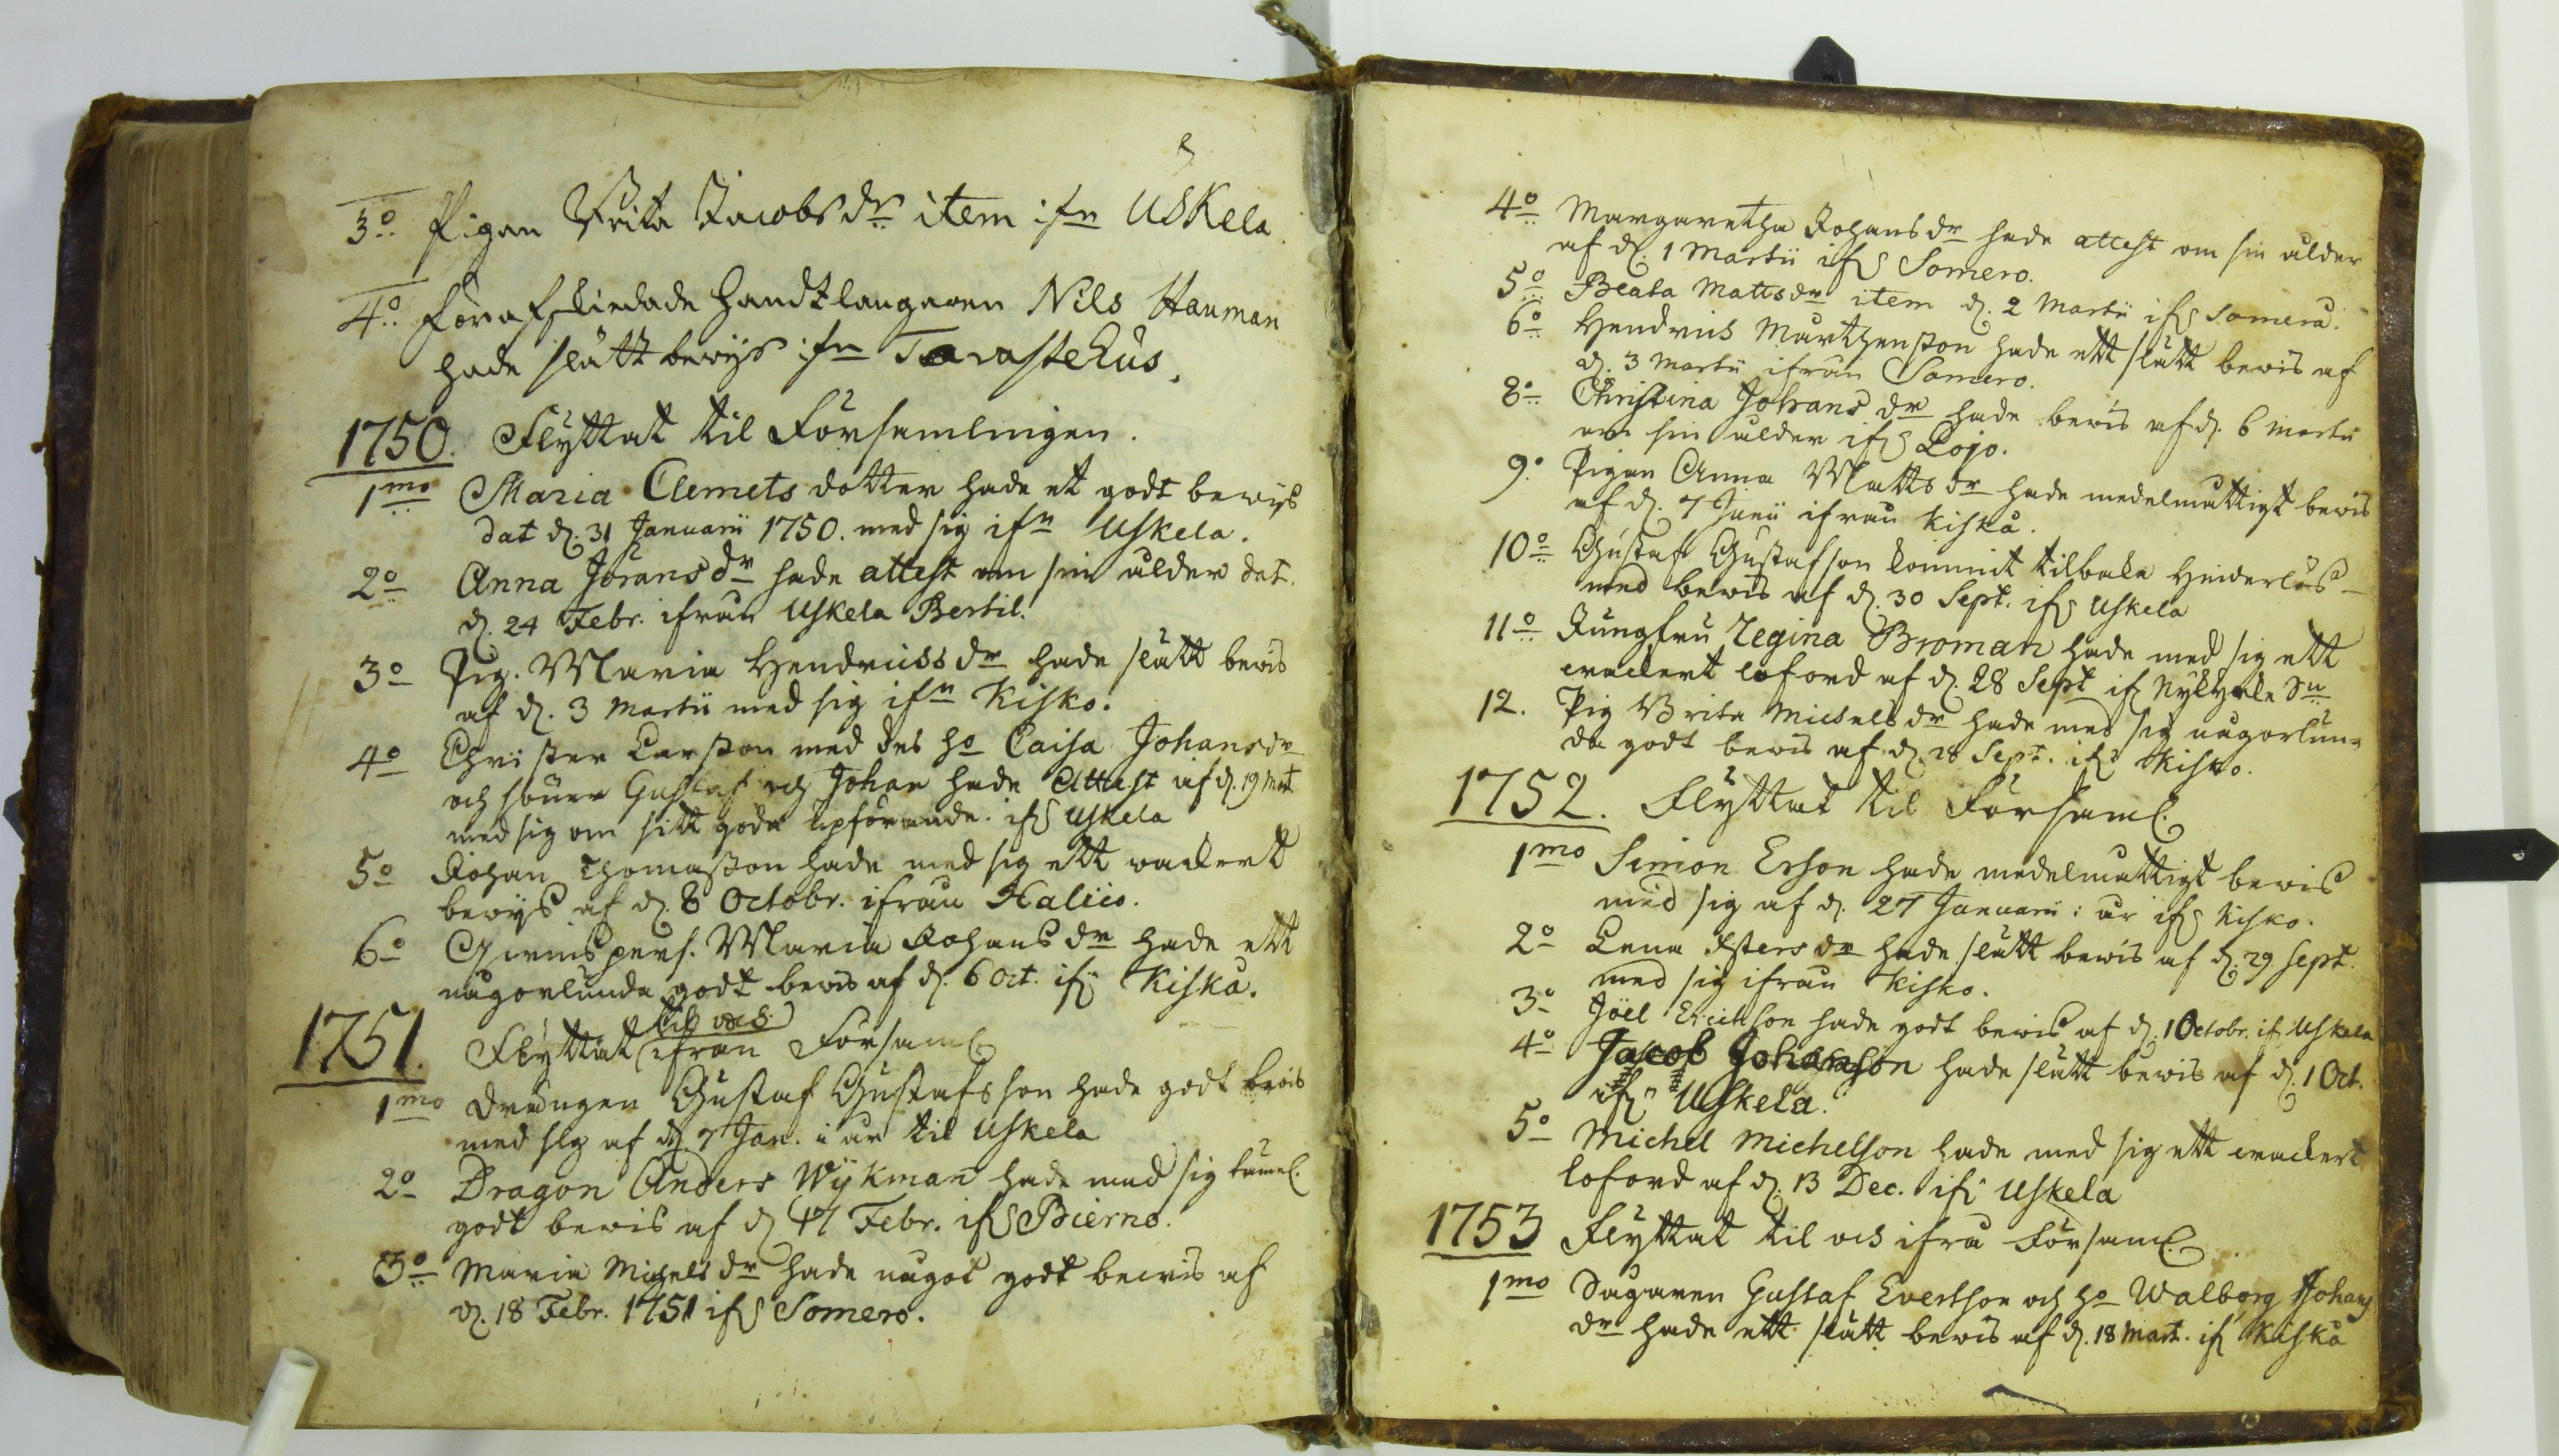 3o Pigan Brita Jacobsdr item ifn Uskela
4o Förafskiedade Handtlangaren Nils Hauman
hade slätt bewijs ifn Tavastehus.
1750. Flyttat til Församlingen.
1mo Maria Clemets dotter hade et godt bewijs
dat d. 31 Januarii 1750. med sig ifn Uskela.
2o Anna Jörans dr hade attest om sin ålder dat.
d. 24 Febr. ifrån Uskela Bertil.
3o Pig. Maria Hendricks dr hade slätt bewis
af d. 3 Martii med sig ifn Kisko.
4o Christer Larsson med des ho Caisa Johansdr
och söner Gustaf och Johan hade Attest af d. 19 Mart
med sig om sitt goda upförande. ifr Uskela
5o Johan Thomasson hade med sig ett wackert
bewijs af d. 8 Octobr. ifrån Halico.
6o Qwinspers. Maria Johans dr hade ett
någorlunda godt bewis af d. 6 Oct. ifr Kisko.
1751. Flyttat (ifrån til oss) Församl.
1mo Drängen Gustaf Gustafsson hade godt bewis
med sig af d. 7 Jan. i år til Uskela
2o Dragon Anders Wijkman hade med sig tämel.
godt bewis af d. 17 Febr. ifr Bierno.
3o Maria Michels dr hade något godt bewis af
d. 18 Febr. 1751 ifr Somero.
4o Margaretha Johansdr hade attest om sin ålder
af d. 1 Martii ifr Somero.
5o Beata Mattsdr item d. 2 Martii ifr Somero.
6o Hendrich Mårthensson hade ett slätt bewis af
d. 3 Martii ifrån Somero.
8o Christina Johans dr hade bewis af d. 6 Martii
om sin ålder ifr Lojo.
9o Pigan Anna Matts dr hade medelmåttigt bewis
af d. 7 Junii ifrån Kisko.
10o Gustaf Gustafson kommit tilbaka hinderlös
med bewis af d. 30 Sept. ifr Uskela
11o Jungfru Regina Broman hade med sig ett
wackert loford af d. 28 Sept ifr Nykyrka Sn
12. Pig Brita Michelsdr hade med sig någorlun-
da godt bewis af d. 28 Sept. ifr Kisko.
1752. Flyttat til Församl.
1mo Simon Erson hade medelmåttigt bewis
med sig af d. 27 Januarii i år ifr Kisko.
2o Lena dr hade slätt bewis af d. 29 Sept.
med sig ifrån Kisko.
3o Joel Erichson hade godt bewis af d. 1 Octobr. ifr Uskela
4o Jacob Johansson hade slätt bewis af d. 1 Oct.
ifr Uskela.
5o Michel Michelson hade med sig ett wackert
loford af d. 13 Dec. ifr Uskela
1753 Flyttat til oss ifrå Församl.
1mo Sågaren Gustaf Evertson och ho Walborg Johans
dr hade ett slätt bewis af d. 18 Mart. ifr Kisko